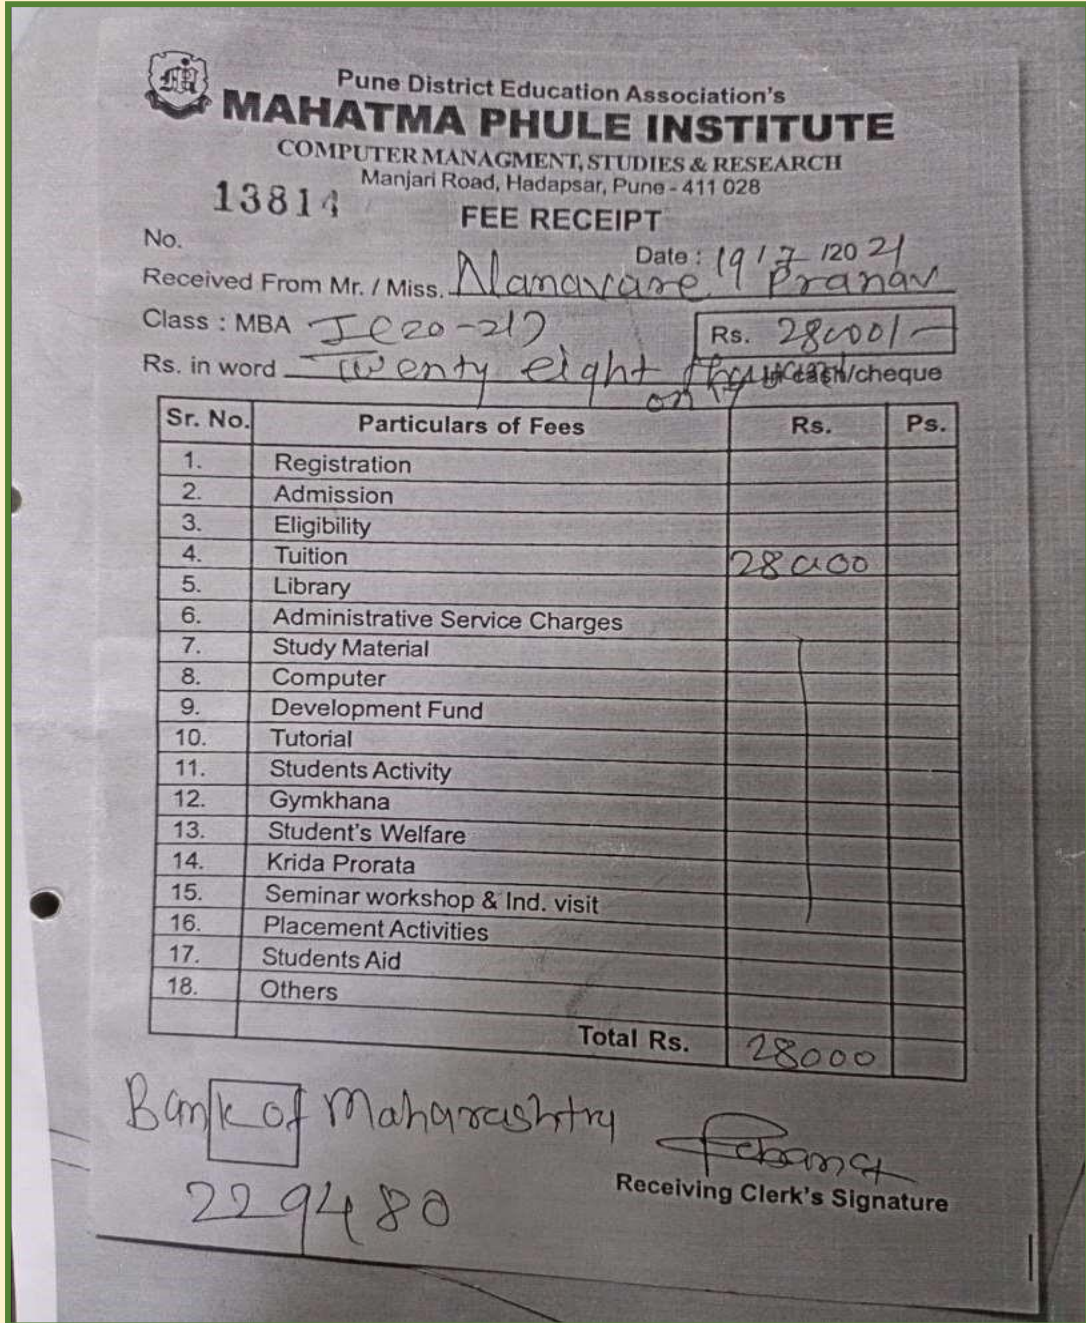 Pune District Education Association's
MAHATMA PHULE INSTITUTE
COMPUTER MANAGMENT, STUDIES & RESEARCH
Manjari Road, Hadapsar, Pune - 411 028
13814
FEE RECEIPT
No.
Date : 19 / 7 /2021
Received From Mr. / Miss. Nanavare Pranav
Class : MBA I (20-21)
Rs. 28000/-
Rs. in word Twenty eight thousand only in cash/cheque
Sr. No. Particulars of Fees Rs. Ps.
1. Registration
2. Admission
3. Eligibility
4. Tuition 28000
5. Library
6. Administrative Service Charges
7. Study Material
8. Computer
9. Development Fund
10. Tutorial
11. Students Activity
12. Gymkhana
13. Student's Welfare
14. Krida Prorata
15. Seminar workshop & Ind. visit
16. Placement Activities
17. Students Aid
18. Others
Total Rs. 28000
Bank of Maharashtra
229480
Receiving Clerk's Signature